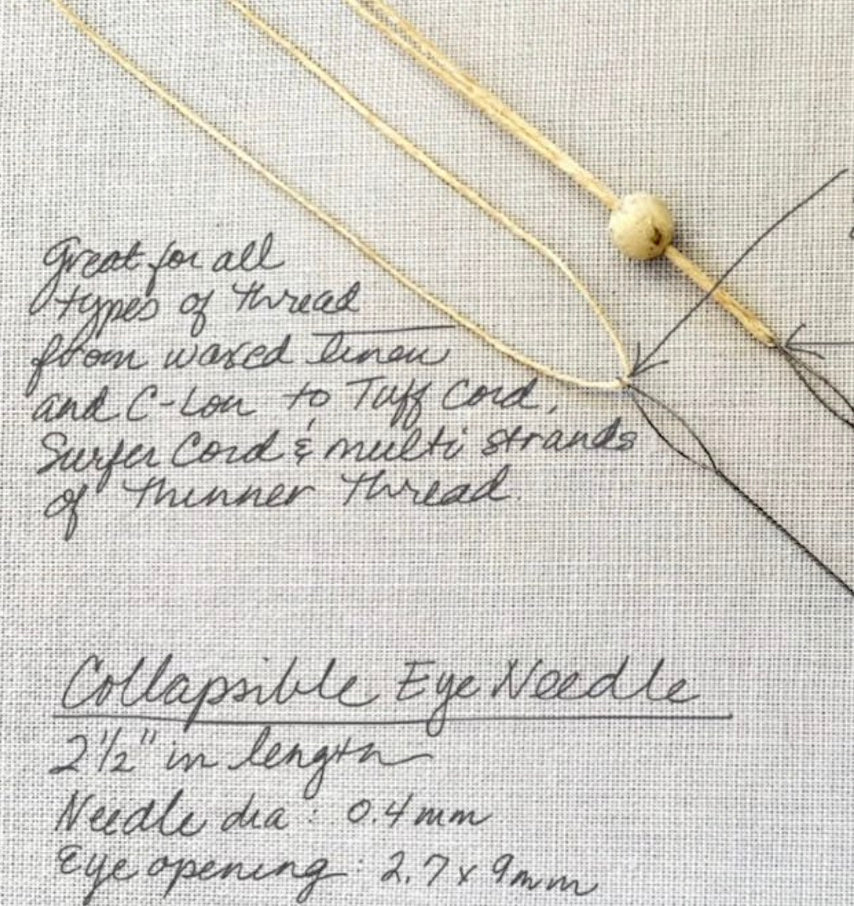 Great for all
types of thread
from waxed linen
and C-Lon to Tuff Cord,
Surfer Cord & multi strands
of thinner thread.
Collapsible Eye Needle
2 1/2" in length
Needle dia: 0.4mm
Eye opening: 2.7 x 9mm